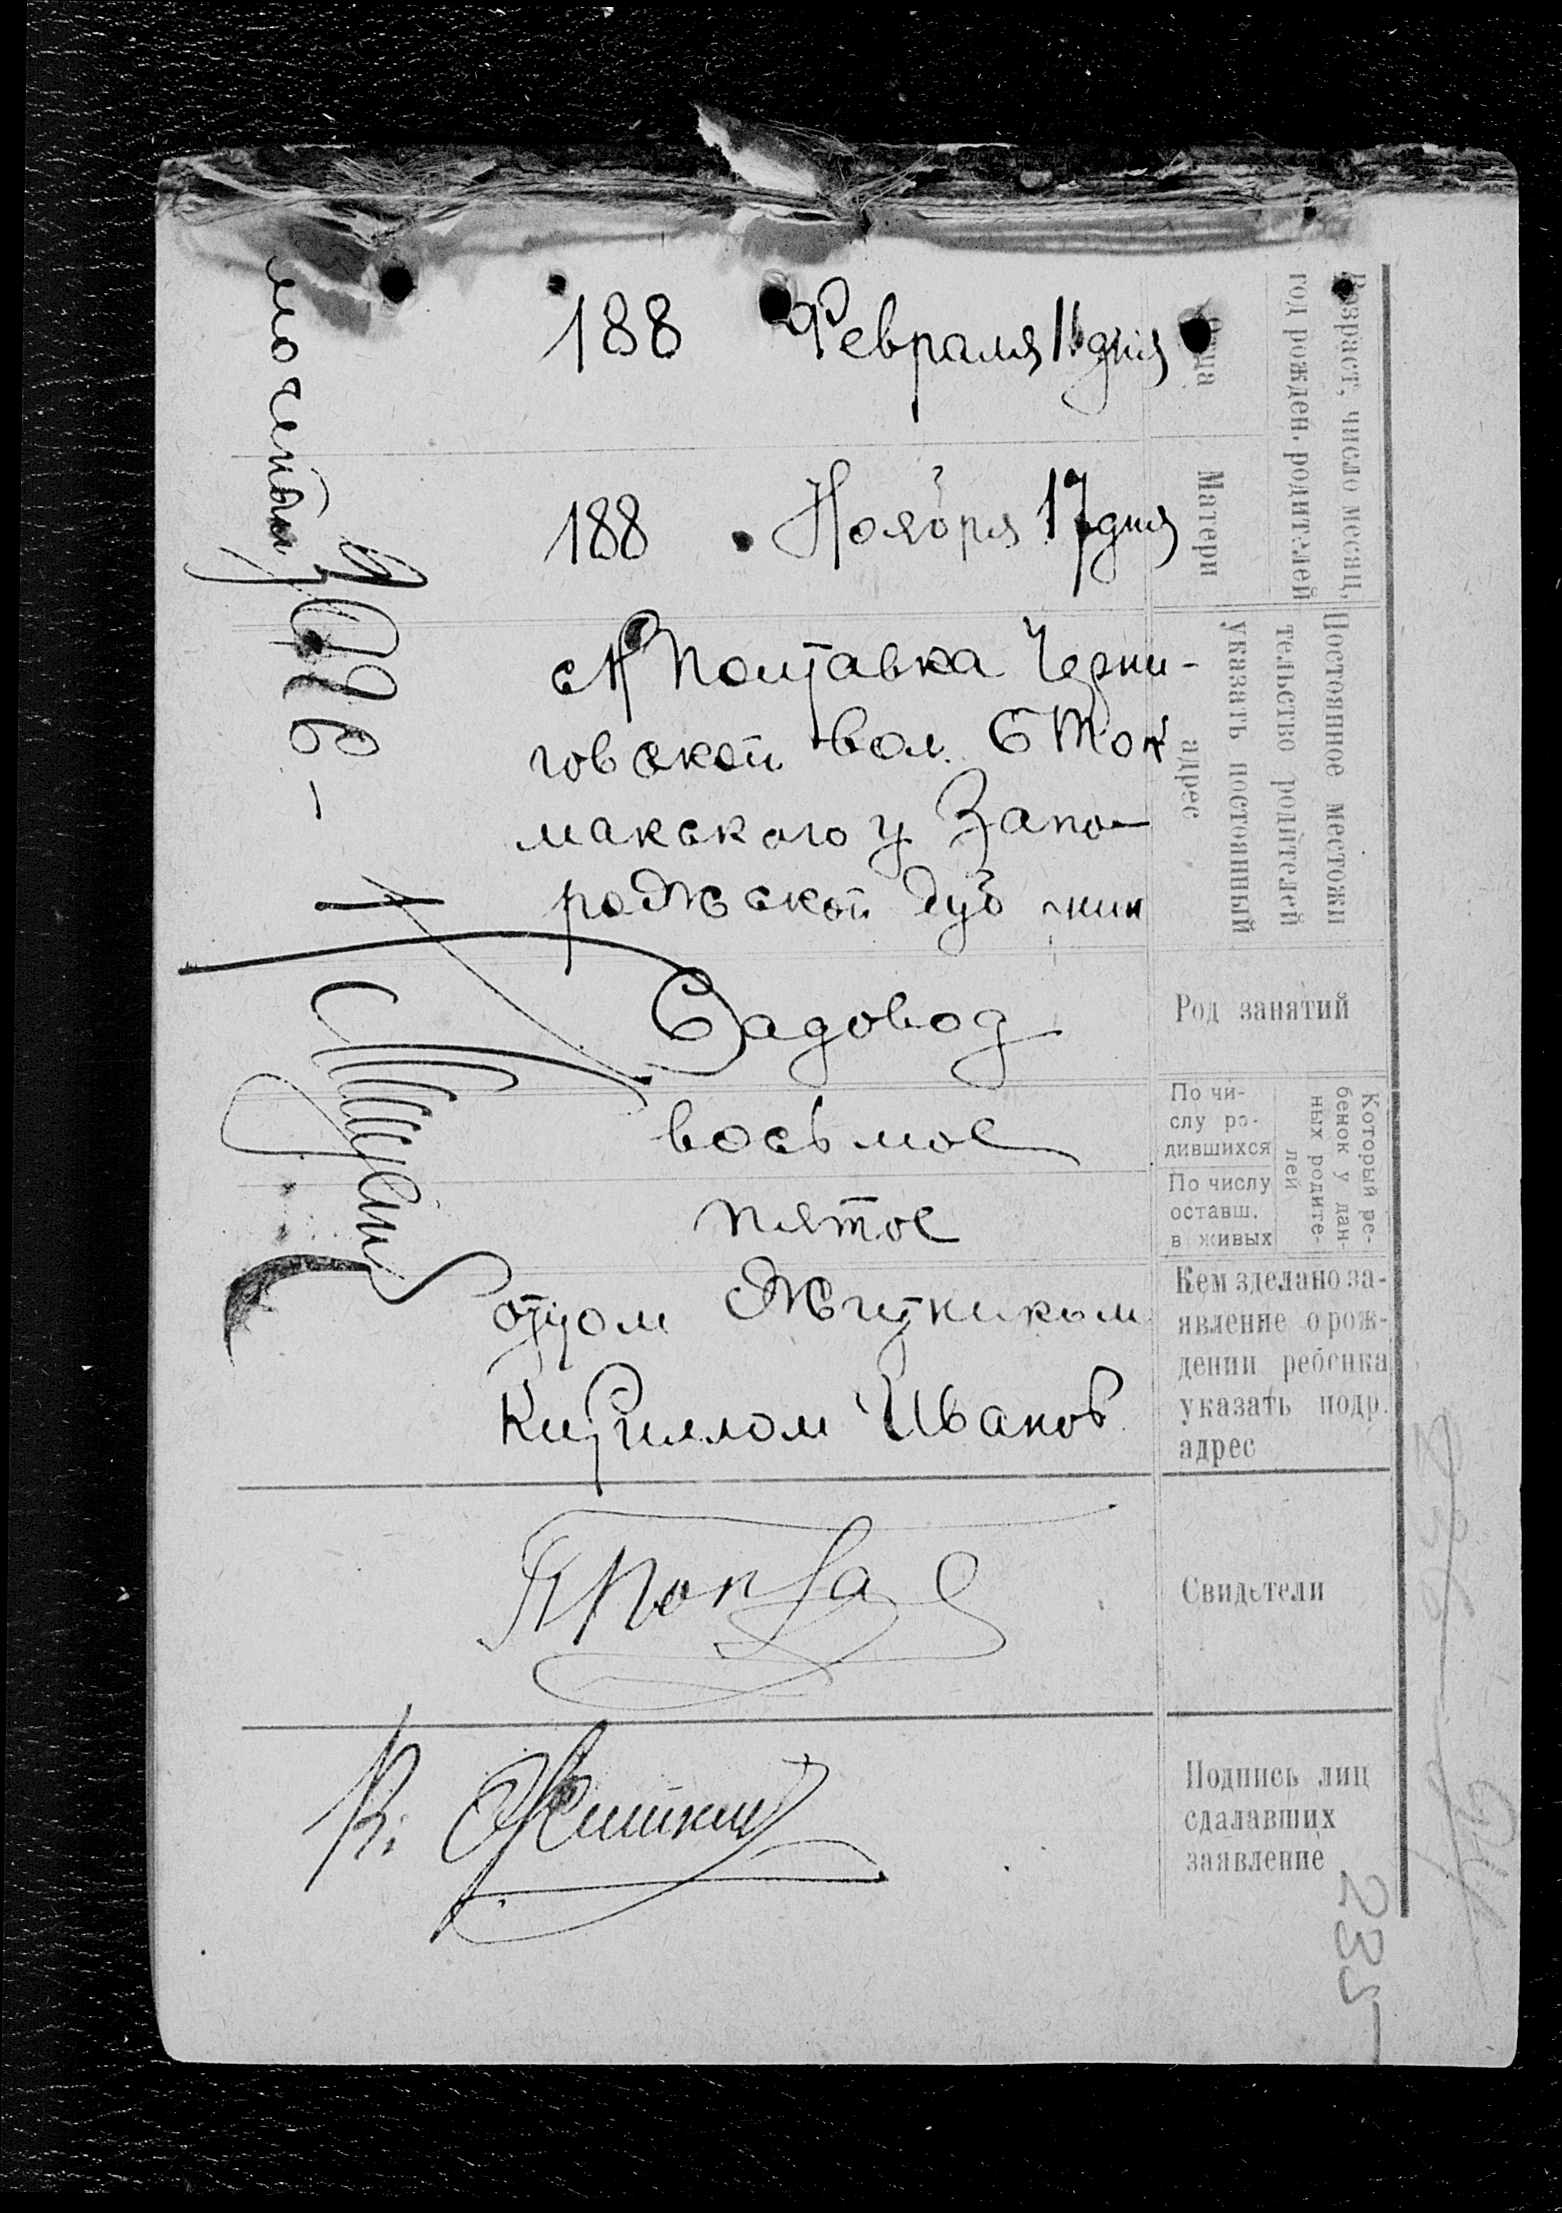 Возраст, число месяц,
год рожден. родителей
Отца
188 Февраля 11 дня
Матери
188 Ноября 17 дня
Постоянное местожи
тельство родителей
указать постоянный
адрес
сН Полтавка Черни-
говской вол. Б Ток
макского у Запо-
рожской Губ
Род занятий
Садовод
Который ре-
бенок у дан-
ных родите-
лей
По чи-
слу ро-
дившихся
восьмое
По числу
оставш.
в живых
пятое
Кем зделано за-
явление о рож-
дении ребенка
указать подр.
адрес
отцом Житником
Кириллом Иванов
Свидетели
Подпись лиц
сдалавших
заявление
К. Житник
235